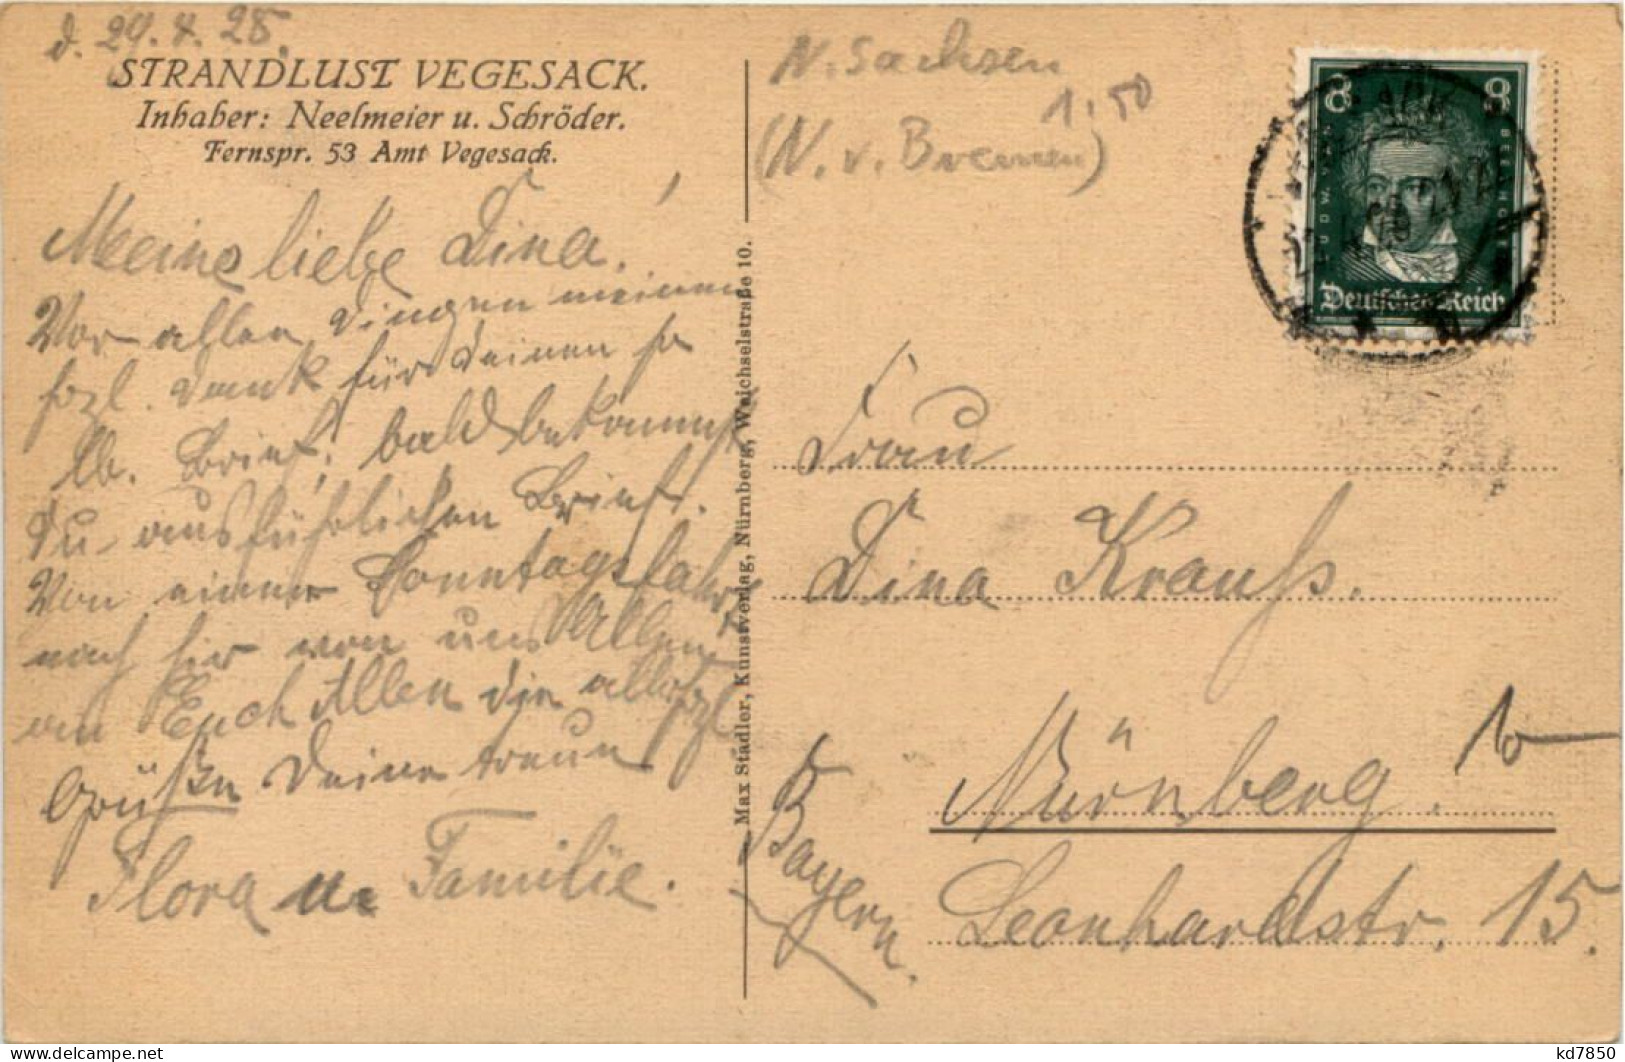 d. 29.4.28.
STRANDLUST VEGESACK.
Inhaber: Neelmeier u. Schröder.
Fernspr. 53 Amt Vegesack.
Meine liebe Dina!
Vor allen Dingen meinen
hzl. Dank für Deinen so
lb. Brief, bald bekommst
Du ausführlichen Brief.
Von einer Sonntagsfahrt
nach hier von uns Allen
an Euch Allen die allerhzl
Grüße Deine treue
Flora u. Familie.
Max Stadler, Kunstverlag, Nürnberg, Weichselstraße 10.
N. Sachsen
1.50
(N. v. Bremen)
8 8
Deutsches Reich
Frau
Dina Krauß.
Nürnberg.
Leonhardstr. 15.
Bayern.
delcampe.net
kd7850